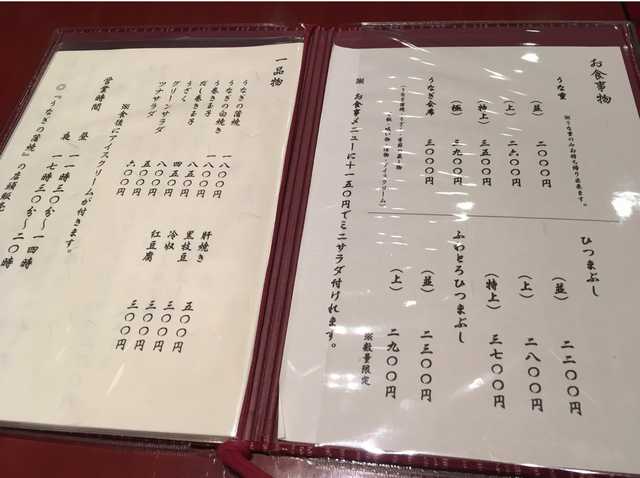 お食事物
うな重
※うな重のみお持ち帰り出来ます。
（並） 二〇〇〇円
（上） 二六〇〇円
（特上） 三五〇〇円
（極） 三九〇〇円
うなぎ会席 三〇〇〇円
ひつまぶし
（並） 二二〇〇円
（上） 二八〇〇円
（特上） 三七〇〇円
ふわとろひつまぶし
（並） 二三〇〇円
（上） 二九〇〇円
※数量限定
※ お食事メニューに十一五〇円でミニサラダ付けれます。
一品物
うなぎの蒲焼 一八〇〇円
うなぎの白焼き 一八〇〇円
うまき玉子 八五〇円
だし巻き玉子 四五〇円
うざく 八〇〇円
グリーンサラダ 五〇〇円
ツナサラダ 六〇〇円
肝焼き 五〇〇円
黒枝豆 三〇〇円
冷奴 三〇〇円
紅豆腐 三〇〇円
※食後にアイスクリームが付きます。
営業時間
昼 一一時三〇分〜一四時
夜 一七時三〇分〜二〇時
◎『うなぎの蒲焼』の店頭販売